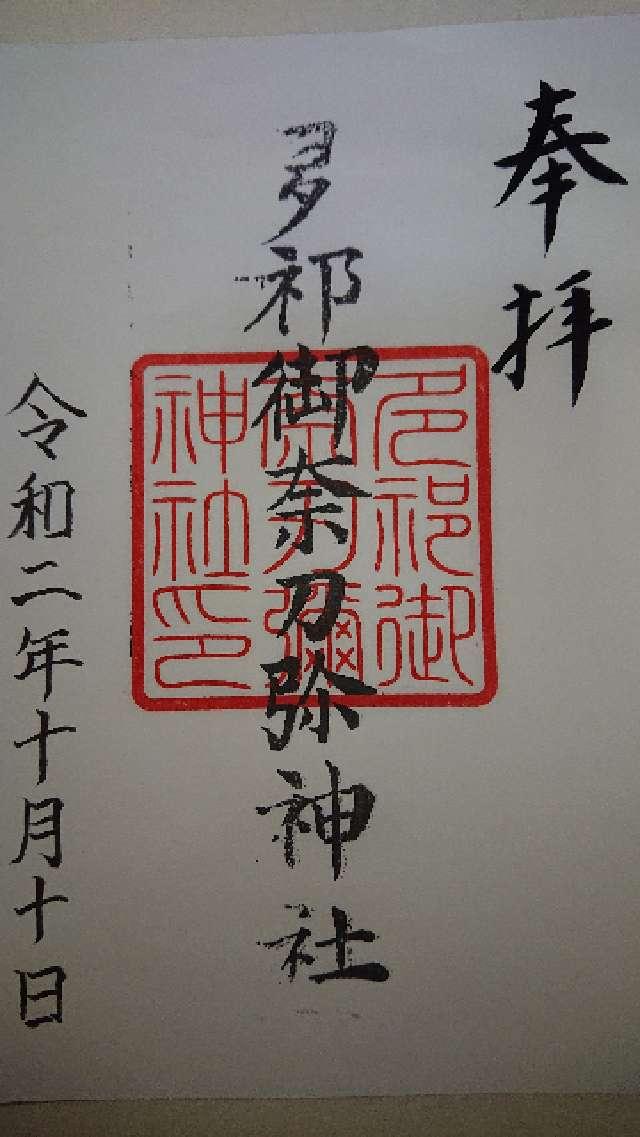 奉拝
多祁御奈刀弥神社
多祁御
奈刀彌
神社印
令和二年十月十日